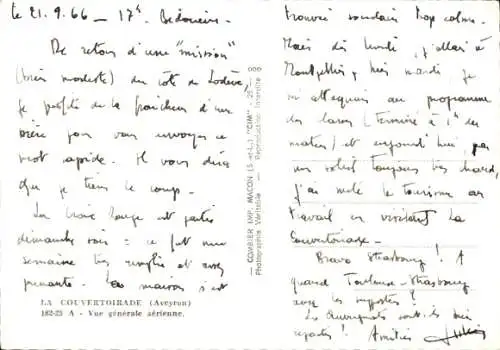 le 21.9.66 — 17h. Bédarieux -
De retour d'une "mission"
(très modeste) du côté de Lodève,
je profite de la fraîcheur d'une
bière pour vous envoyer ce
mot rapide. Il vous dira
que je tiens le coup.
La Croix Rouge est partie
dimanche soir : ce fut une
semaine très remplie et assez
. La maison s'est
LA COUVERTOIRADE (Aveyron)
182-23 A - Vue générale aérienne.
— COMBIER IMP. MACON (S.-et-L.) "CIM" —
Photographie Véritable — Reproduction Interdite
trouvée soudain trop calme.
Mais dès lundi, j'allai à
Montpellier, hier mardi, je
m'attaquai au programme
des (terminé à 1h du
matin) et aujourd'hui, par
un soleil toujours très chaud,
j'ai mêlé le tourisme au
travail en visitant La
Couvertoirade -
Bravo Strasbourg ! A
quand Toulouse-Strasbourg
avec les ?
Les Auvergnats sont
! Amitiés